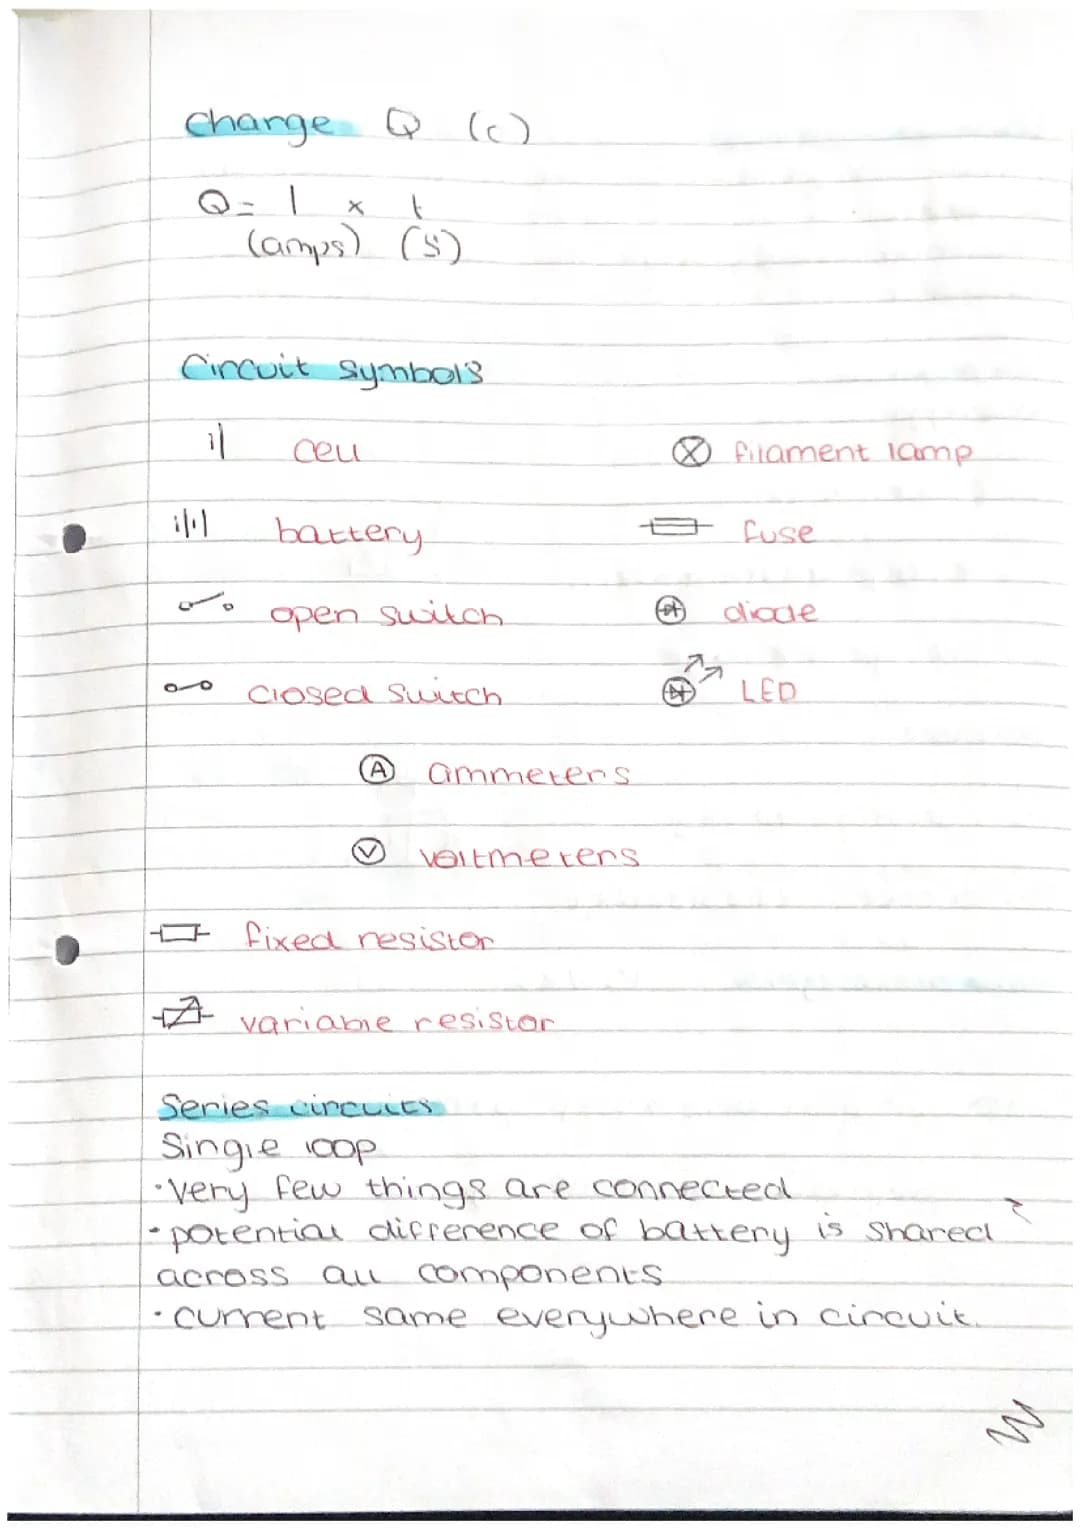 Charge Q (c)
Q = I x t
(amps) (s)
Circuit symbols
cell
filament lamp
battery
fuse
open switch
diode
closed switch
LED
A ammeters
V voltmeters
fixed resistor
variable resistor
Series circuits
Single loop
· Very few things are connected
· potential difference of battery is shared
across all components
· current same everywhere in circuit.